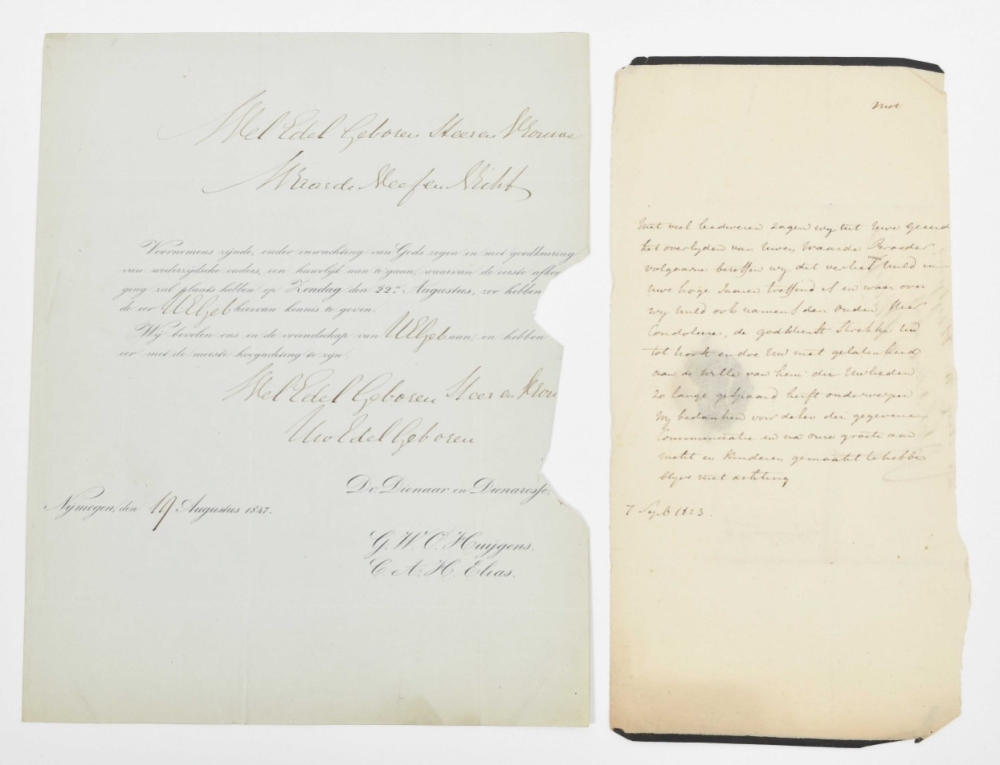 Wel Edel Geboren Heer en Vrouwe
Waarde Neef en Nicht
Voornemens zijnde, onder inwachting van Gods zegen en met goedkeuring
van wederzijdsche ouders, een huwelijk aan te gaan, waarvan de eerste afkon
ging zal plaats hebben op Zondag den 22n Augustus, zoo hebben
de eer UEGeb hiervan kennis te geven.
Wij bevelen ons in de vriendschap van UEGeb aan, en hebben
eer met de meeste hoogachting te zijn,
Wel Edel Geboren Heer en Vrou
Uw Edel Geboren
Dv. Dienaar en Dienaresse,
Nijmegen, den 19 Augustus 1847.
G. W. C. Huijgens.
C. A. H. Elias.
Met veel leedwezen zagen wy uit Uwe Geeerd
het overlyden van Uwen Waarde Broeder
wy dit verlies in
Uwe hoge Jaaren treffend is en waar over
wy ook namens den ouden Heer
Condoleere, de
tot en met gelatenheid
aan de wille van hem die
zo lange gespaard heeft onderwerpen
Wy bedanken voor de gegevene
Communicatie en na onze groete aan
en Kinderen gemaakt te hebbe
blyve met achting
7 Sepb 1823.